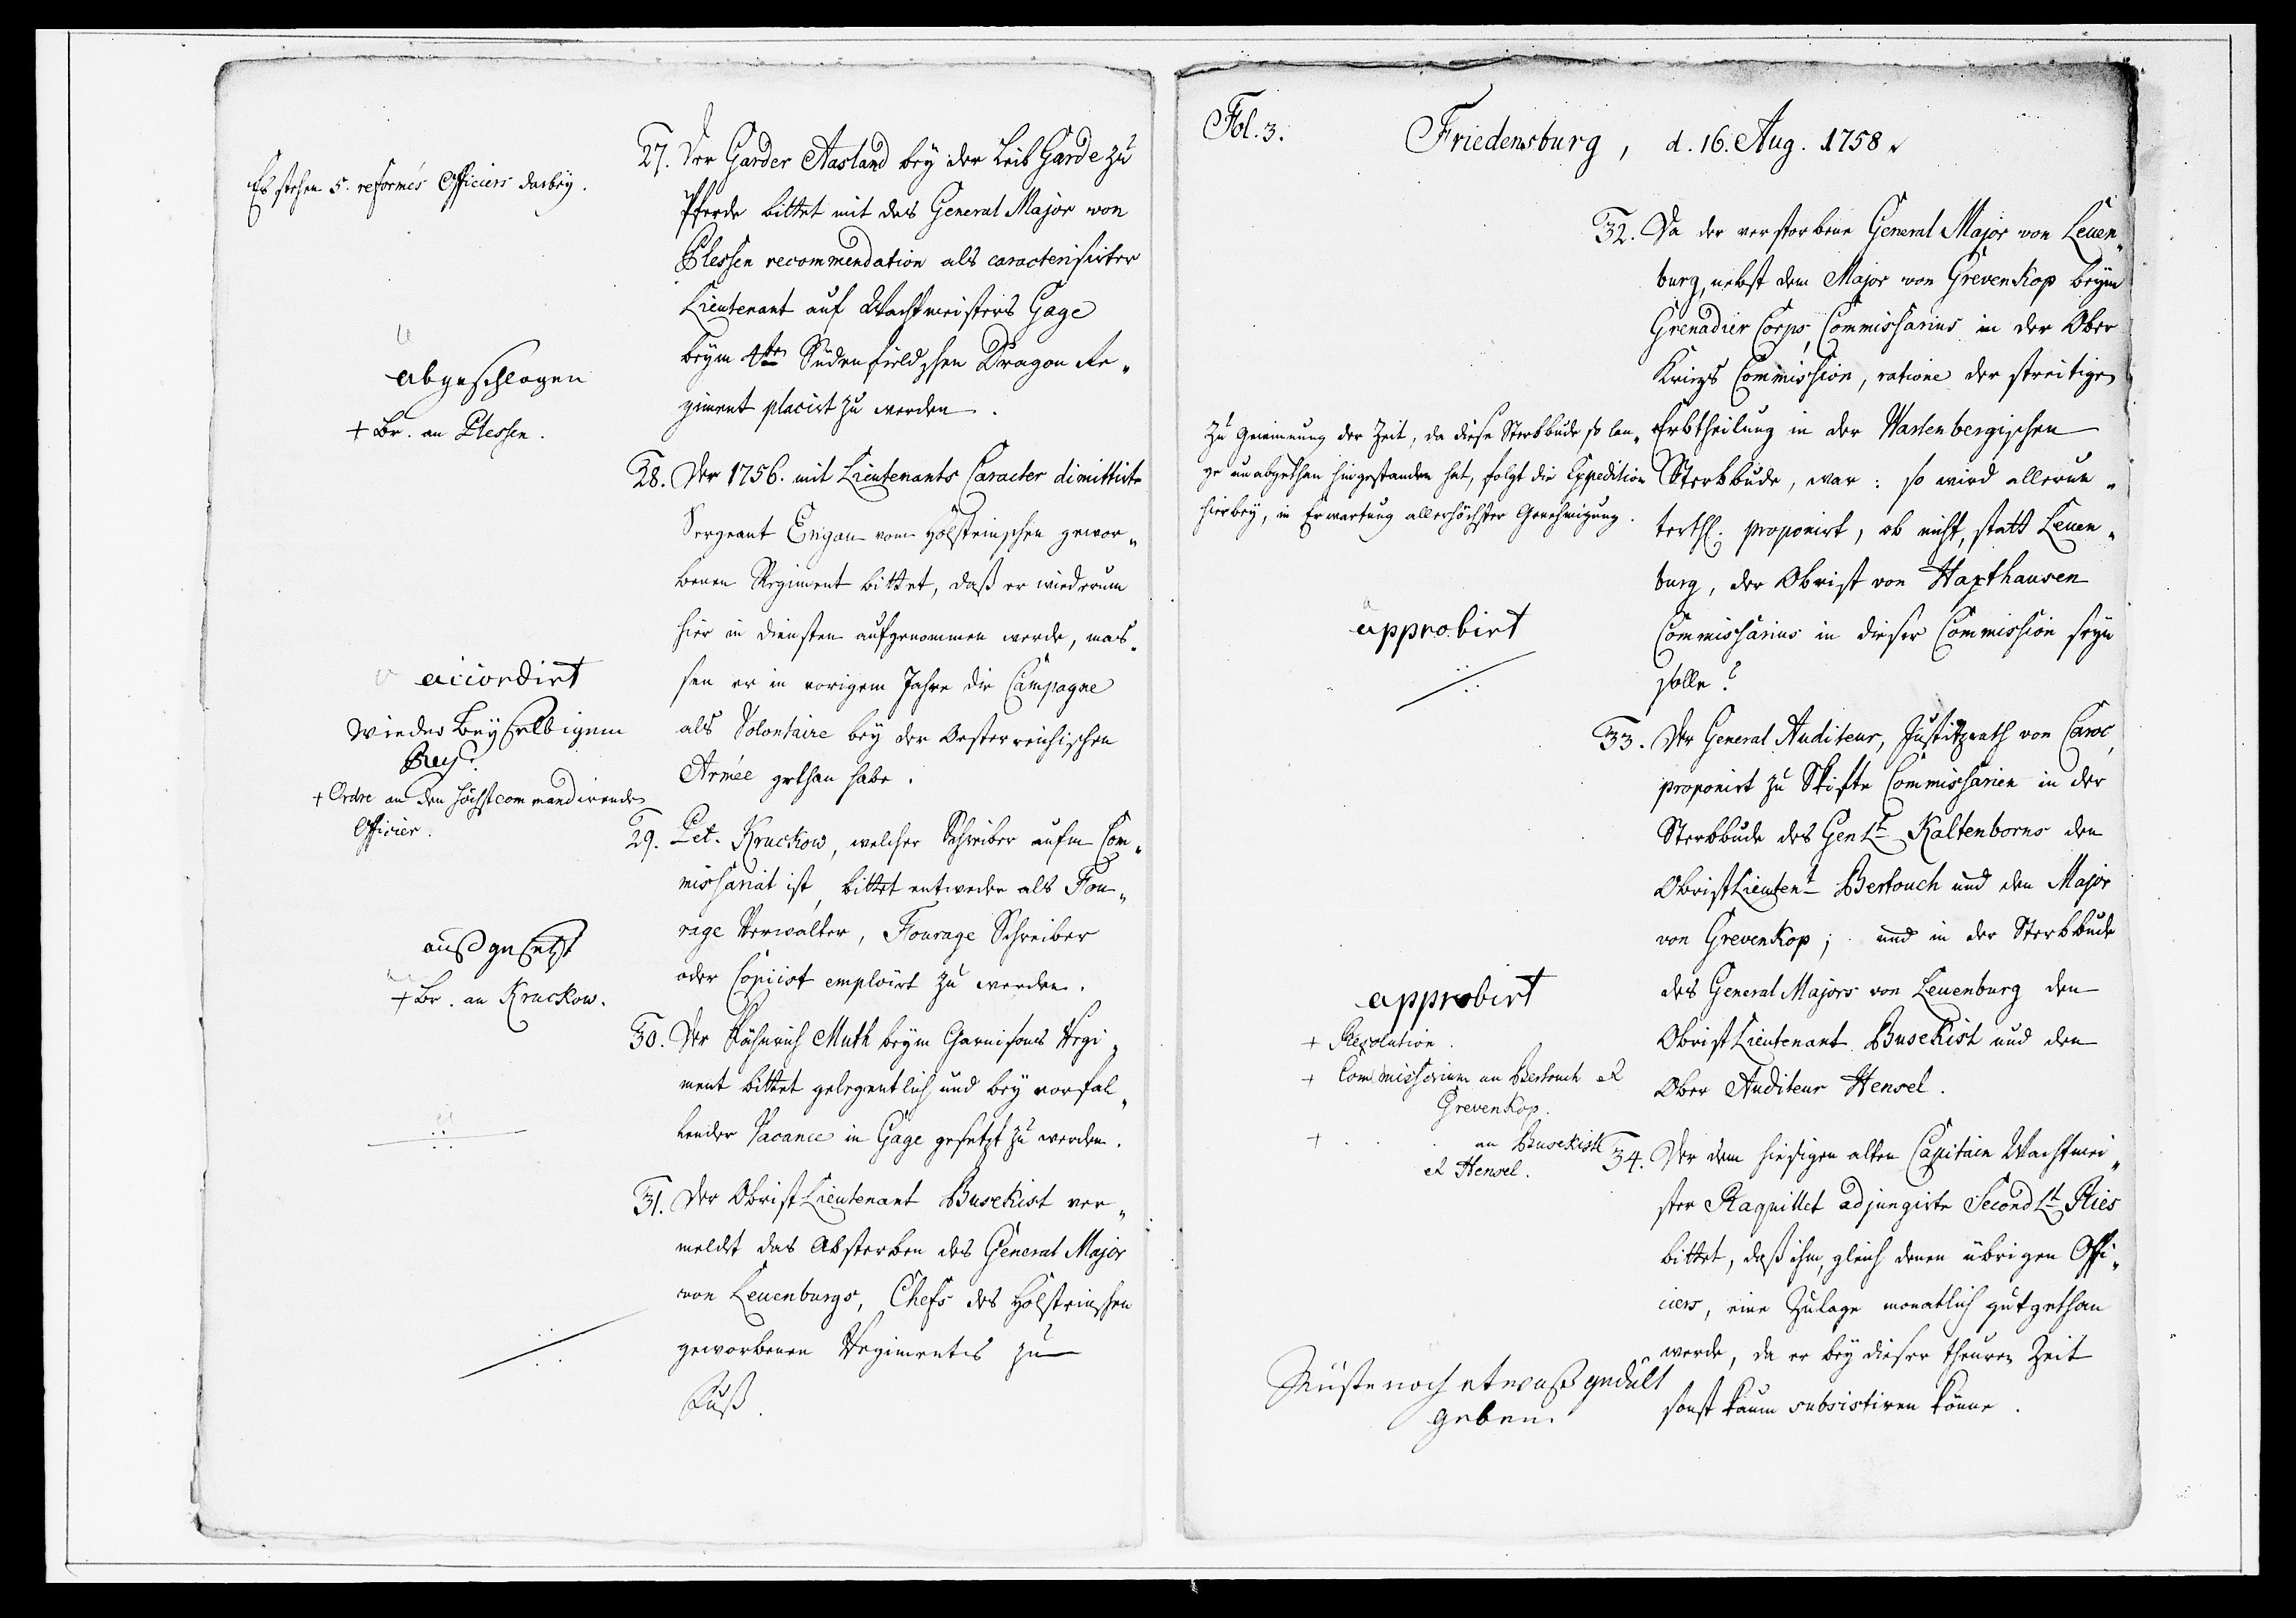 Es stehen 5. reformés Officiers darbey.
abgeschlagen
+ Br. an Plessen.
accordirt
wieder bey selbigem
Reg?
+ Ordre an den höchstcommandirende
Officier.
außgesetzt
+ Br. an Kruckow.
27. Der Garder Aasland bey der Leib Garde zu
Pferde bittet mit des General Major von
Plessen recommendation als caracterisirter
Lieutenant auf Wachtmeisters Gage
beym 4ten Südenfieldschen Dragon Re„
giment placirt zu werden.
28. Der 1756. mit Lieutenants Caracter dimittirte
Sergeant Engau vom Holsteinschen gewor„
benen Regiment bittet, daß er wiederum
hier in diensten aufgenommen werde, mas„
sen er in vorigem Jahre die Campagne
als Volontaire bey der Oesterreichischen
Armée gethan habe.
29. Pet. Kruckow, welcher Schreiber aufm Com„
missariat ist, bittet entweder als Fou„
rage Verwalter, Fourage Schreiber
oder Copiist emploirt zu werden.
30. Der Fähnrich Muth beym Garnisons Regi„
ment bittet gelegentlich und bey vorfal„
lender Vacance in Gage gesetzt zu werden.
31. Der Obrist Lieutenant Busekist ver„
meldet das Absterben des General Major
von Leuenburgs, Chefs des Holsteinschen
geworbenen Regimentes zu
Fuß.
Fol. 3.
Friedensburg, d. 16. Aug. 1758.
Zu Gewinnung der Zeit, da diese Sterbbude so lan„
ge unabgethan hingestanden hat, folgt die Expedition
hierbey, in Erwartung allerhöchster Genehmigung.
approbirt
approbirt
+ Resolution.
+ Commissorium an Bertouch et
Grevenkop.
+ . . an Busekist
et Hensel.
Müste noch etwaß gedult
geben.
32. Da der verstorbene General Major von Leuen„
burg, nebst dem Major von Grevenkop beym
Grenadier Corps, Commissarius in der Ober
Kriegs Commission, ratione der streitigen
Erbtheilung in der Wartenbergischen
Sterbbude, war: so wird allerun„
terth. proponirt, ob nicht, statt Leuen„
burg, der Obrist von Haxthausen
Commissarius in dieser Commission seyn
solle?
33. Der General Auditeur, Justitzrath von Caroc,
proponirt zu Skifte Commissarien in der
Sterbbude des Gen Lt Kaltenborns den
Obrist Lieutent Bertouch und den Major
von Grevenkop; und in der Sterbbude
des General Majors von Leuenburg den
Obrist Lieutenant Busekist und den
Ober Auditeur Hensel.
34. Der dem hiesigen alten Capitain Wachtmei„
ster Raquillet adjungirte Second Lt Ries
bittet, daß ihm, gleich denen übrigen Offi„
ciers, eine Zulage monatlich gutgethan
werde, da er bey dieser theuren Zeit
sonst kaum subsistiren könne.